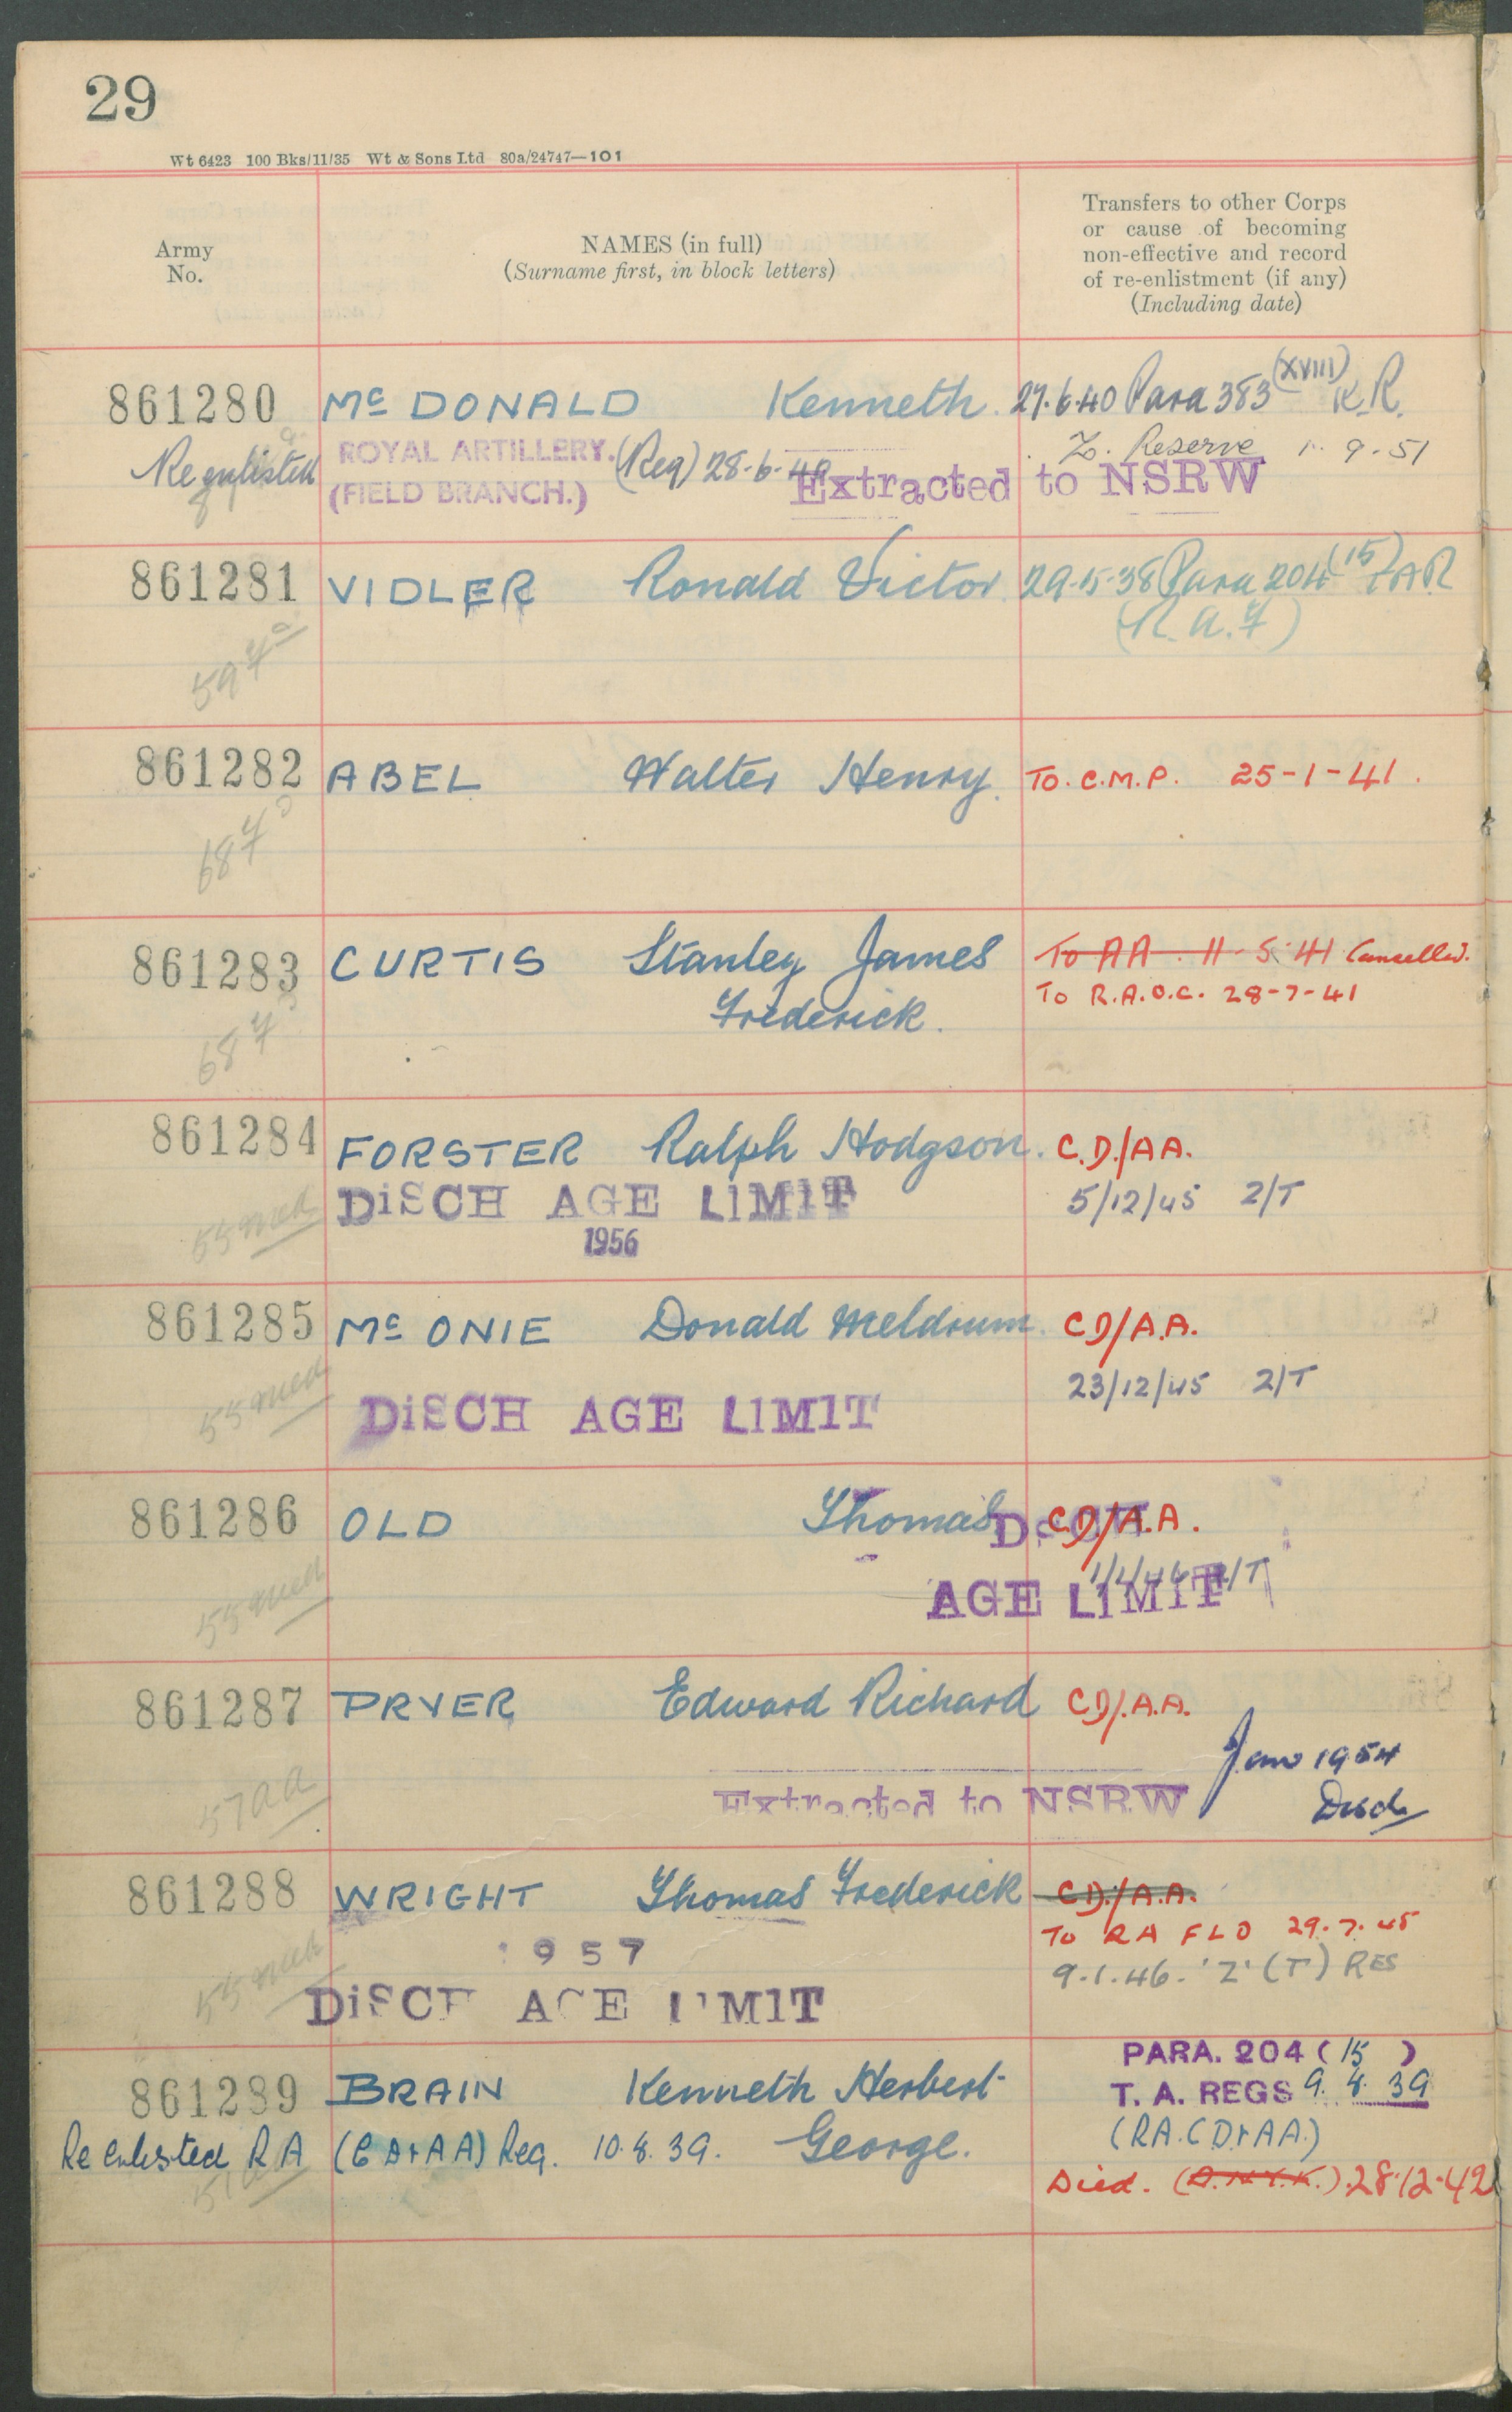 29
Wt 6423 100 Bks/11/35 Wt & Sons Ltd 80a/24747—101
Army No.
NAMES (in full)
(Surname first, in block letters)
Transfers to other Corps
or cause of becoming
non-effective and record
of re-enlistment (if any)
(Including date)
861280 Mc DONALD Kenneth. 27.6.40 Para 383 (XVIII) K.R.
Z. Reserve 1. 9. 51
Re enlisted ROYAL ARTILLERY. (Reg) 28.6.40
(FIELD BRANCH.) Extracted to NSRW
861281 VIDLER Ronald Victor. Para 204 (15) TAR
(R.A.F)
861282 ABEL Walter Henry. To. C.M.P. 25-1-41.
861283 CURTIS Stanley James To AA. 11-5-41 Cancelled.
Frederick. To R.A.O.C. 28-7-41
68 F
861284 FORSTER Ralph Hodgson. C.D./AA.
DiSCH AGE LIMIT 5/12/45 2/T
1956
55 med
861285 Mc ONIE Donald Meldrum. CD/A.A.
23/12/45 2/T
55 med DiSCH AGE LIMIT
861286 OLD Thomas. CD/A.A.
DiSCH
55 med AGE LIMIT
861287 PRYER Edward Richard CD/.A.A.
Jan 1954
57 aa Extracted to NSRW Disch
861288 WRIGHT Thomas Frederick CD./A.A.
To RA FLD 29.7.45
1957 9.1.46. 'Z' (T) RES
55 med DiSCH AGE LIMIT
PARA. 204 (15)
861289 BRAIN Kenneth Herbert T. A. REGS 9. 8. 39
Re enlisted RA (CD+AA) Reg. 10.8.39. George. (RA.CD+AA.)
Died. 28.12.42